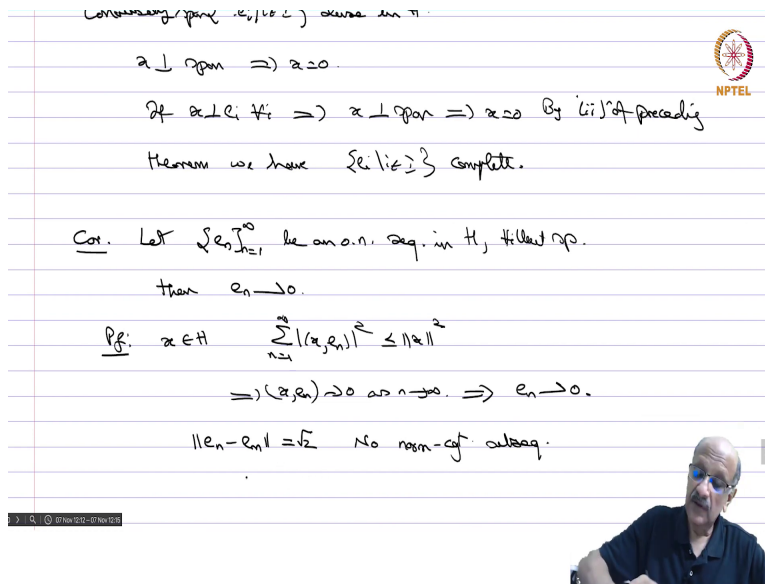 Conversely, span {e_i | i∈I} dense in H.
NPTEL
x ⊥ span ⇒ x=0.
If x⊥e_i ∀i ⇒ x ⊥ span ⇒ x=0 By (ii) of preceding
theorem we have {e_i | i∈I} complete.
Cor. Let {e_n}_{n=1}^∞ be an o.n. seq. in H, Hilbert sp.
then e_n ⇀ 0.
Pf: x∈H ∑_{n=1}^∞ |(x,e_n)|² ≤ ||x||²
⇒ (x,e_n)→0 as n→∞. ⇒ e_n ⇀ 0.
||e_n − e_m|| = √2 No norm-cgt. subseq.
07 Nov 12:12 – 07 Nov 12:15